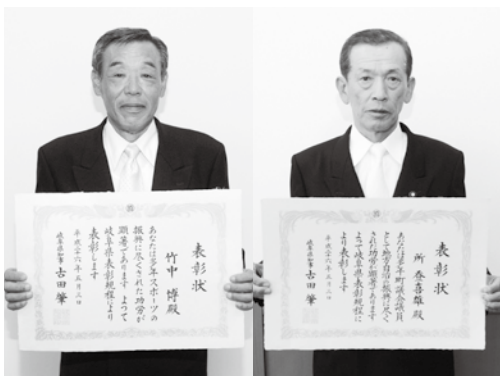 表彰状
竹中 博殿
あなたは多年スポーツの
振興に尽くされた功労が
顕著であります よつて
岐阜県表彰規程により
表彰します
平成二十六年五月三日
岐阜県知事 古田 肇
表彰状
所 春喜雄殿
あなたは多年町議会議員
として地方自治の振興に尽く
された功労が顕著であります
よつて岐阜県表彰規程に
より表彰します
平成二十六年五月三日
岐阜県知事 古田 肇